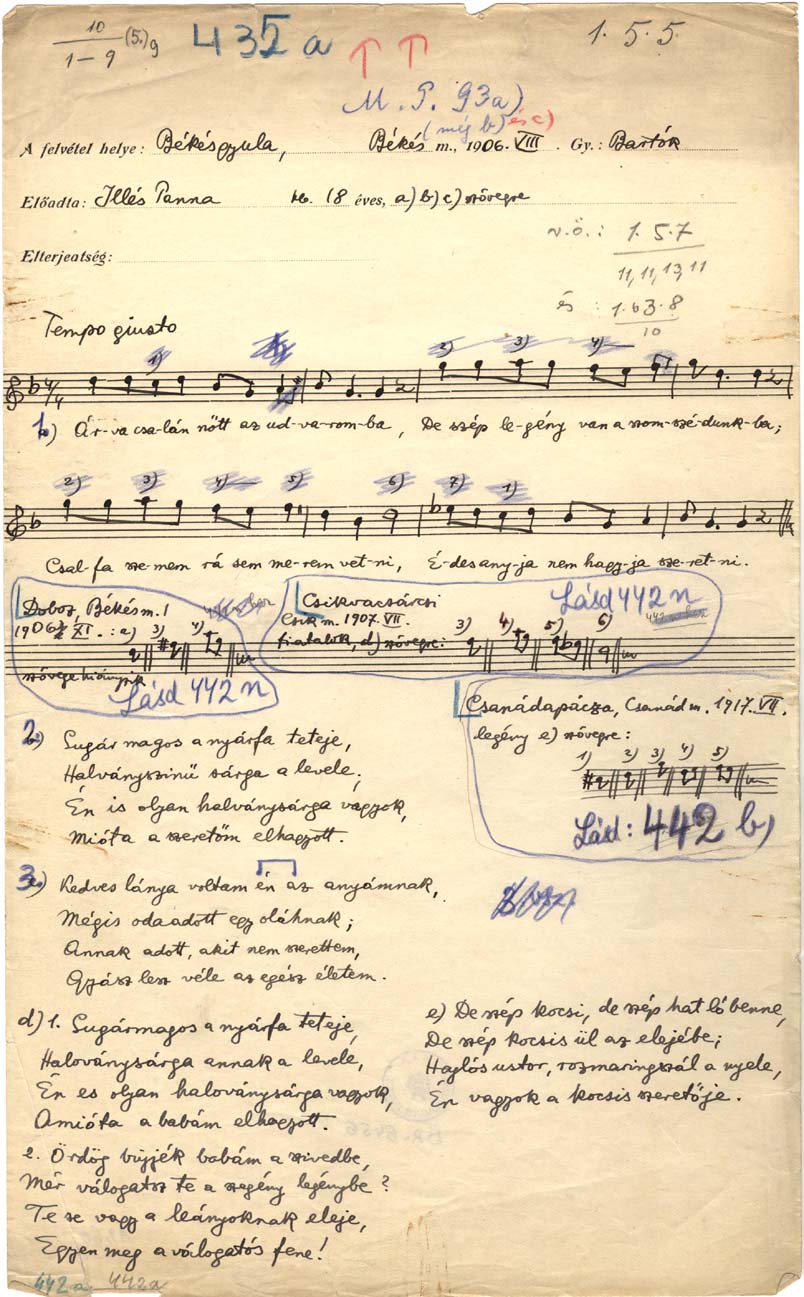 10 / 1-9 (5.) 9
435 a
1. 5. 5.
M. P. 93a)
(még b) és c)
A felvétel helye: Békésgyula, Békés m., 1906. VIII. Gy.: Bartók
Előadta: Illés Panna kb. 18 éves, a) b) c) szövegre
Elterjedtség:
v.ö.: 1. 5. 7
11, 11, 13, 11
és : 1. 63. 8
10
Tempo giusto
1) 2) 3) 4)
1.) Ár-va csa-lán nőtt az ud-va-rom-ba, De szép le-gény van a szom-szé-dunk-ba;
2) 3) 4) 5) 6) 7) 1)
Csal-fa sze-mem rá sem me-rem vet-ni, É-des any-ja nem hagy-ja sze-ret-ni.
Doboz, Békés m.
XI.: a) 3) 4)
szövege hiányzik
Lásd 442 n
Csikvacsárcsi
Csik m. 1907. VII.
fiatalok, d) szövegre: 3) 4) 5) 6)
Lásd 442 n
Csanádapácza, Csanád m. 1917. VII.
legény e) szövegre:
1) 2) 3) 4) 5)
Lásd: 442 b)
2.) Sugár magos a nyárfa teteje,
Halványszinű sárga a levele;
Én is olyan halványsárga vagyok,
Mióta a szeretőm elhagyott.
3.) Kedves lánya voltam én az anyámnak,
Mégis oda adott egy oláhnak;
Annak adott, akit nem szerettem,
Gyász lesz véle az egész életem.
d) 1. Sugármagos a nyárfa teteje,
Haloványsárga annak a levele,
Én es olyan haloványsárga vagyok,
Amióta a babám elhagyott.
2. Ördög bújjék babám a szivedbe,
Mér válogatsz te a szegény legénybe?
Te se vagy a leányoknak eleje,
Egyen meg a válogatós fene!
e) De szép kocsi, de szép hat ló benne,
De szép kocsis ül az elejébe;
Hajlós ustor, rozmaringszál a nyele,
Én vagyok a kocsis szeretője.
442 a 442a